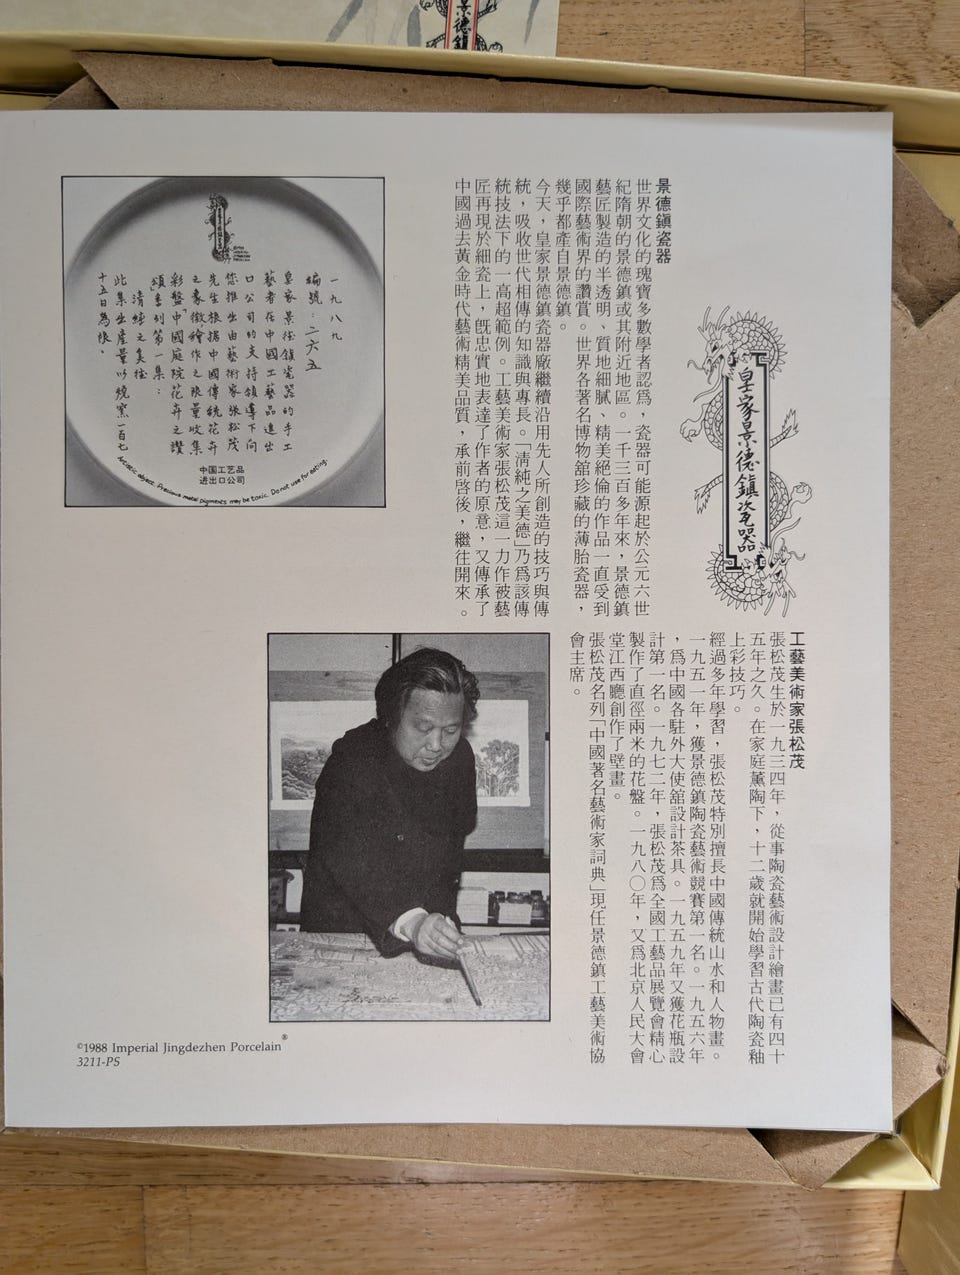 景德鎮
皇家景德鎮瓷器
工藝美術家張松茂
張松茂生於一九三四年，從事陶瓷藝術設計繪畫已有四十
五年之久。在家庭薰陶下，十二歲就開始學習古代陶瓷釉
上彩技巧。
經過多年學習，張松茂特別擅長中國傳統山水和人物畫。
一九五一年，獲景德鎮陶瓷藝術競賽第一名。一九五六年
，爲中國各駐外大使舘設計茶具。一九五九年又獲花瓶設
計第一名。一九七二年，張松茂爲全國工藝品展覽會精心
製作了直徑兩米的花盤。一九八〇年，又爲北京人民大會
堂江西廳創作了壁畫。
張松茂名列「中國著名藝術家詞典」現任景德鎮工藝美術協
會主席。
景德鎮瓷器
世界文化的瑰寶多數學者認爲，瓷器可能源起於公元六世
紀隋朝的景德鎮或其附近地區。一千三百多年來，景德鎮
藝匠製造的半透明、質地細膩、精美絕倫的作品一直受到
國際藝術界的讚賞。世界各著名博物舘珍藏的薄胎瓷器，
幾乎都產自景德鎮。
今天，皇家景德鎮瓷器廠繼續沿用先人所創造的技巧與傳
統，吸收世代相傳的知識與專長。「清純之美德」乃爲該傳
統技法下的一高超範例。工藝美術家張松茂這一力作被藝
匠再現於細瓷上，既忠實地表達了作者的原意，又傳承了
中國過去黃金時代藝術精美品質，承前啓後，繼往開來。
一九八九
編號：二六五
皇家景德鎮瓷器的手工
藝者在中國工藝品進出
口公司的支持領導下向
您推出由藝術家張松茂
先生根據中國傳統花卉
之象徵繪作之限量收集
彩盤「中國庭院花卉之讚
頌」系列第一集：
清純之美德
此集生產量以燒窯一百七
十五日為限。
中国工艺品
进出口公司
Artistic object. Precious metal pigments may be toxic. Do not use for eating.
©1988 Imperial Jingdezhen Porcelain®
3211-PS